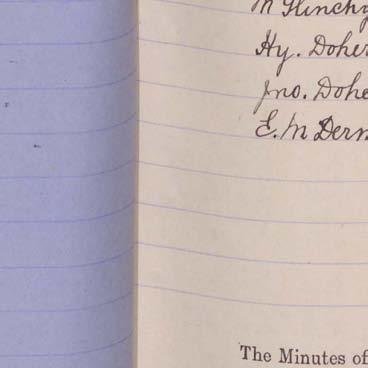 Hy. Doher
Jno. Dohe
E. M Derm
The Minutes of